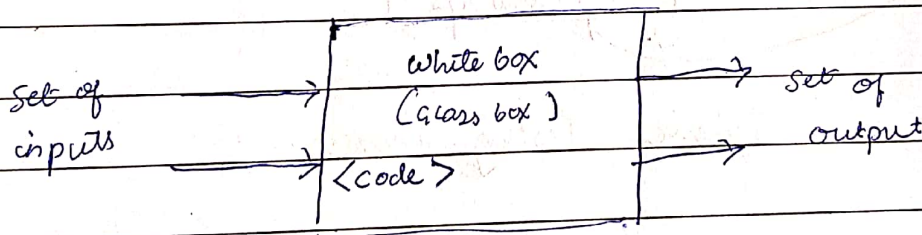 set of
inputs
white box
(Glass box)
<code>
set of
output